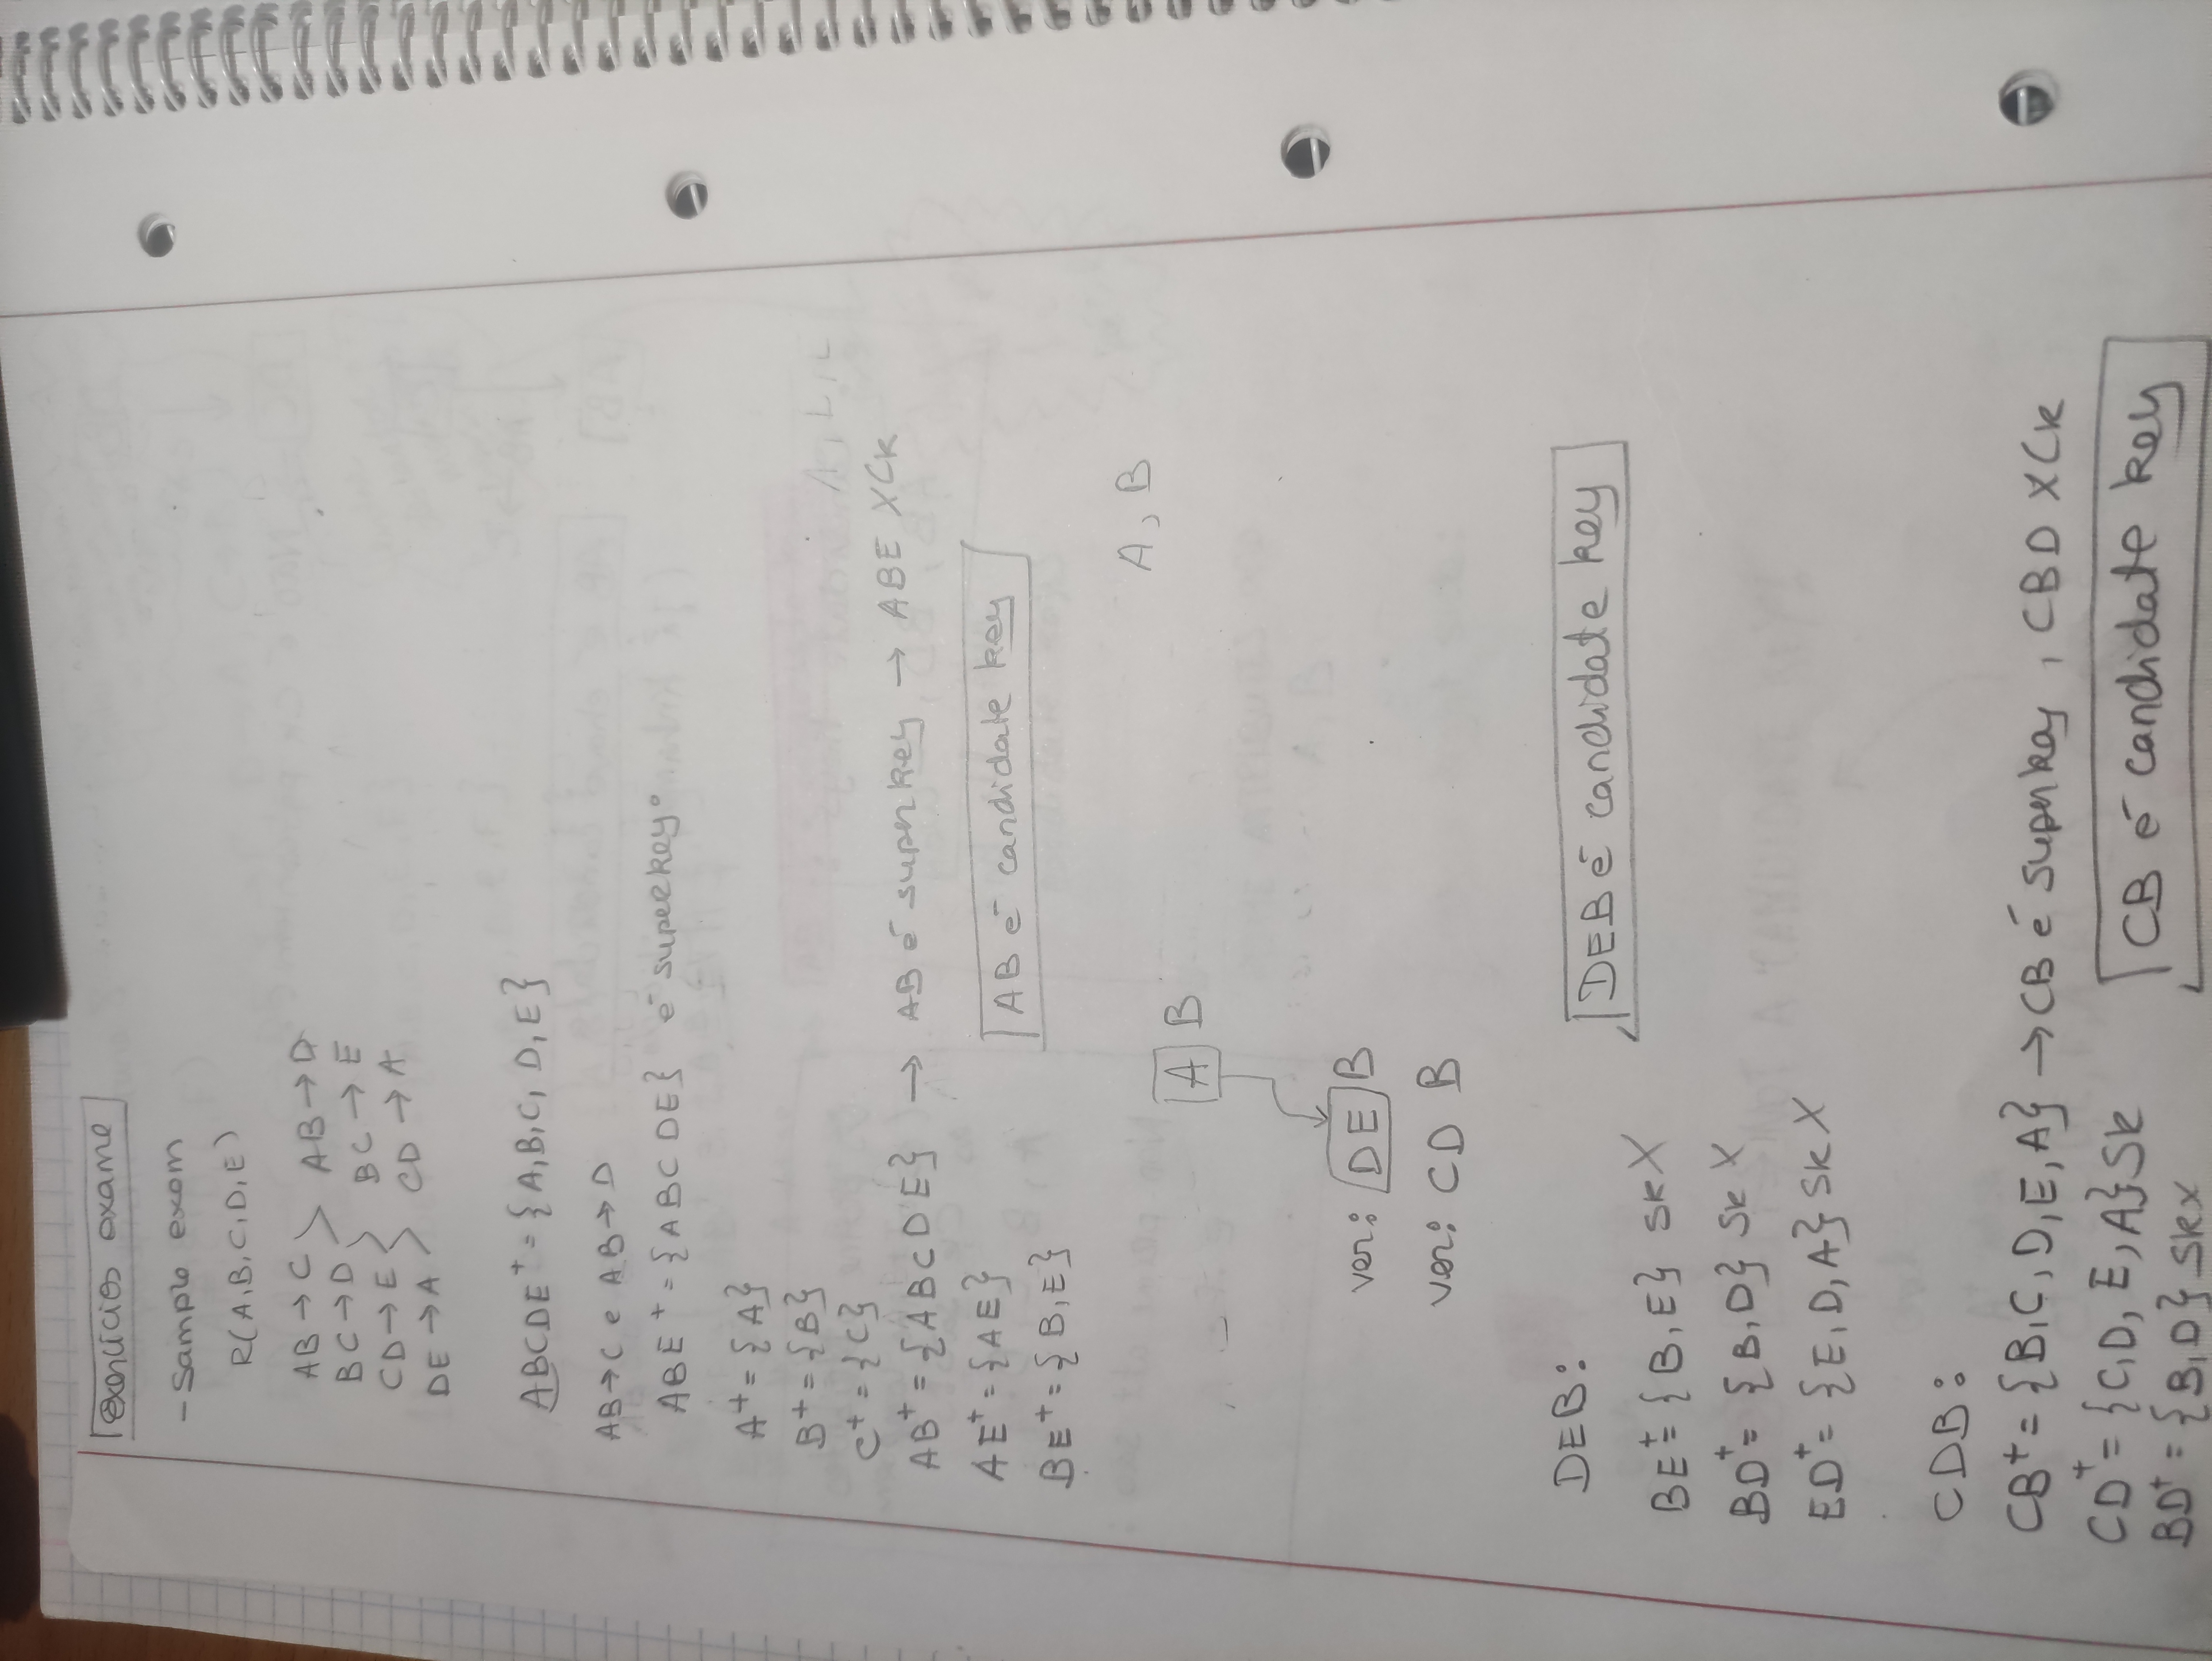 exercícios exame
- Sample exam
R(A,B,C,D,E)
AB → C
AB → D
BC → D
BC → E
CD → E
CD → A
DE → A
ABCDE+ = {A,B,C, D,E}
AB→C e AB→D
ABE+ = {ABCDE} é superkey.
A+ = {A}
B+ = {B}
C+ = {C}
AB+ = {ABCDE} → AB é superkey → ABE X CK
AE+ = {AE}
AB é candidate key
BE+ = {B,E}
A, B
A B
ver: DE B
ver: CD B
DEB:
DEB é candidate key
BE+ = {B,E} SK X
BD+ = {B,D} SK X
ED+ = {E,D,A} SK X
CDB:
CB+ = {B,C,D,E,A} → CB é superkey, CBD X CK
CD+ = {C,D,E,A} SK
CB é candidate key
BD+ = {B,D} SK X